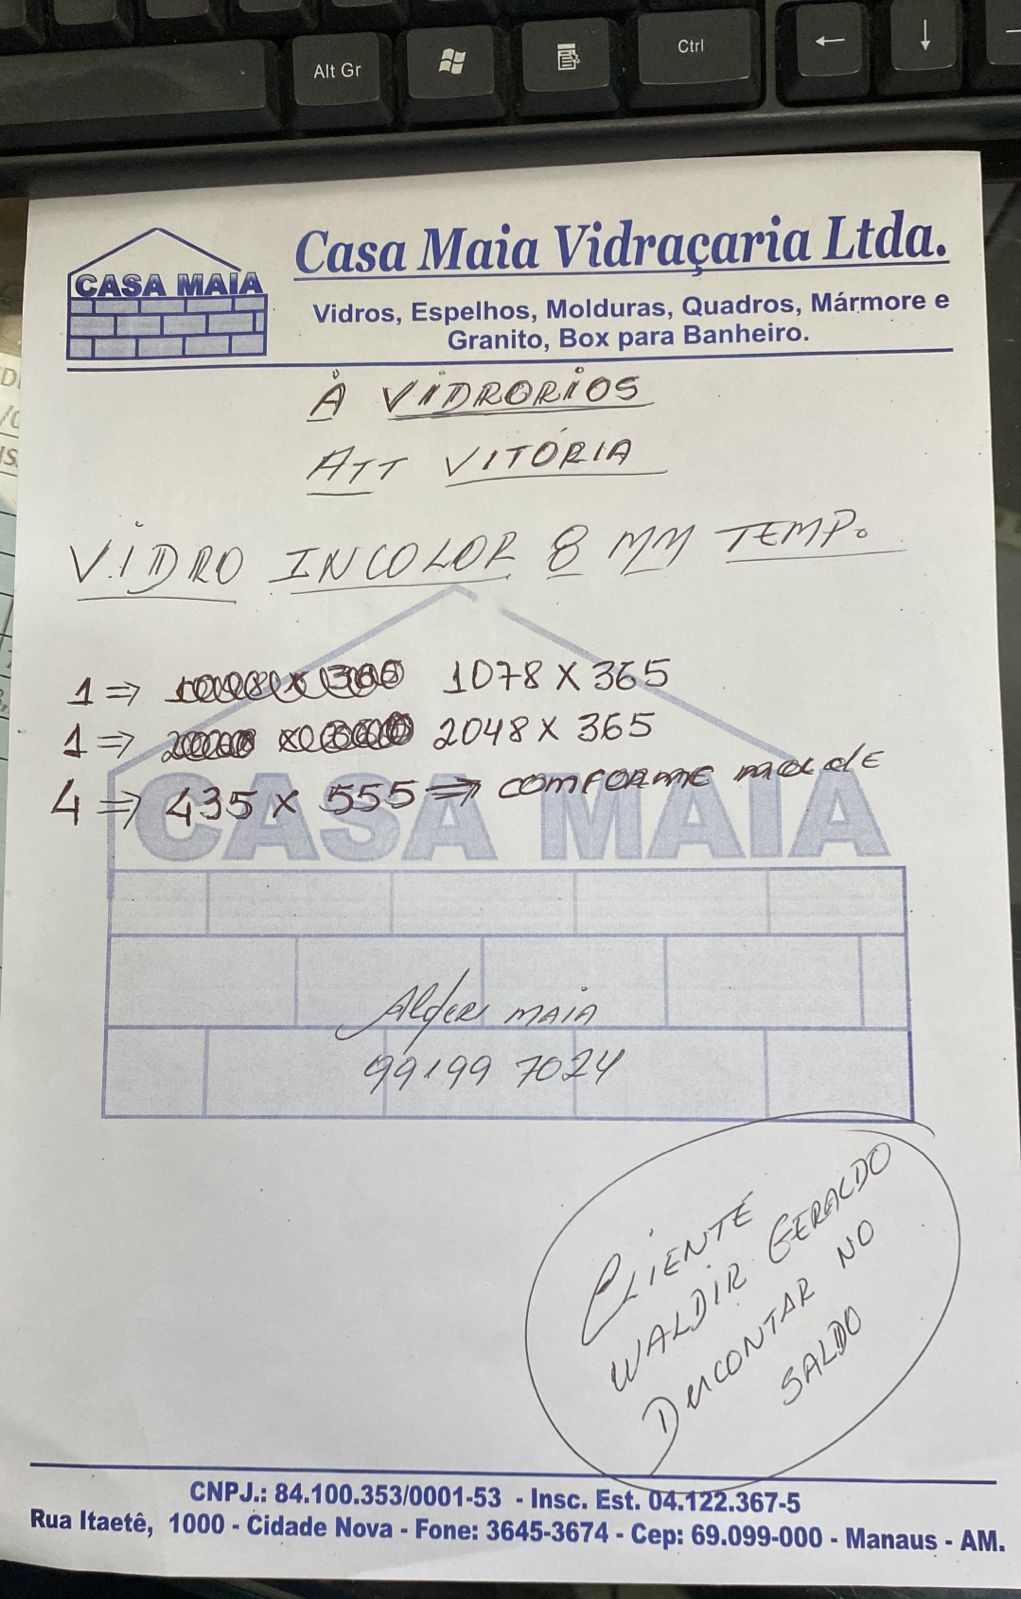 Alt Gr
Ctrl
CASA MAIA
Casa Maia Vidraçaria Ltda.
Vidros, Espelhos, Molduras, Quadros, Mármore e
Granito, Box para Banheiro.
À VIDRORIOS
ATT VITÓRIA
VIDRO INCOLOR 8 MM TEMP.
1 => 1078 X 365
1 => 2048 X 365
4 => 435 X 555 => COMFORME molde
CASA MAIA
MAIA
99199 7024
CLIENTE
WALDIR GERALDO
Descontar NO
SALDO
CNPJ.: 84.100.353/0001-53 - Insc. Est. 04.122.367-5
Rua Itaetê, 1000 - Cidade Nova - Fone: 3645-3674 - Cep: 69.099-000 - Manaus - AM.